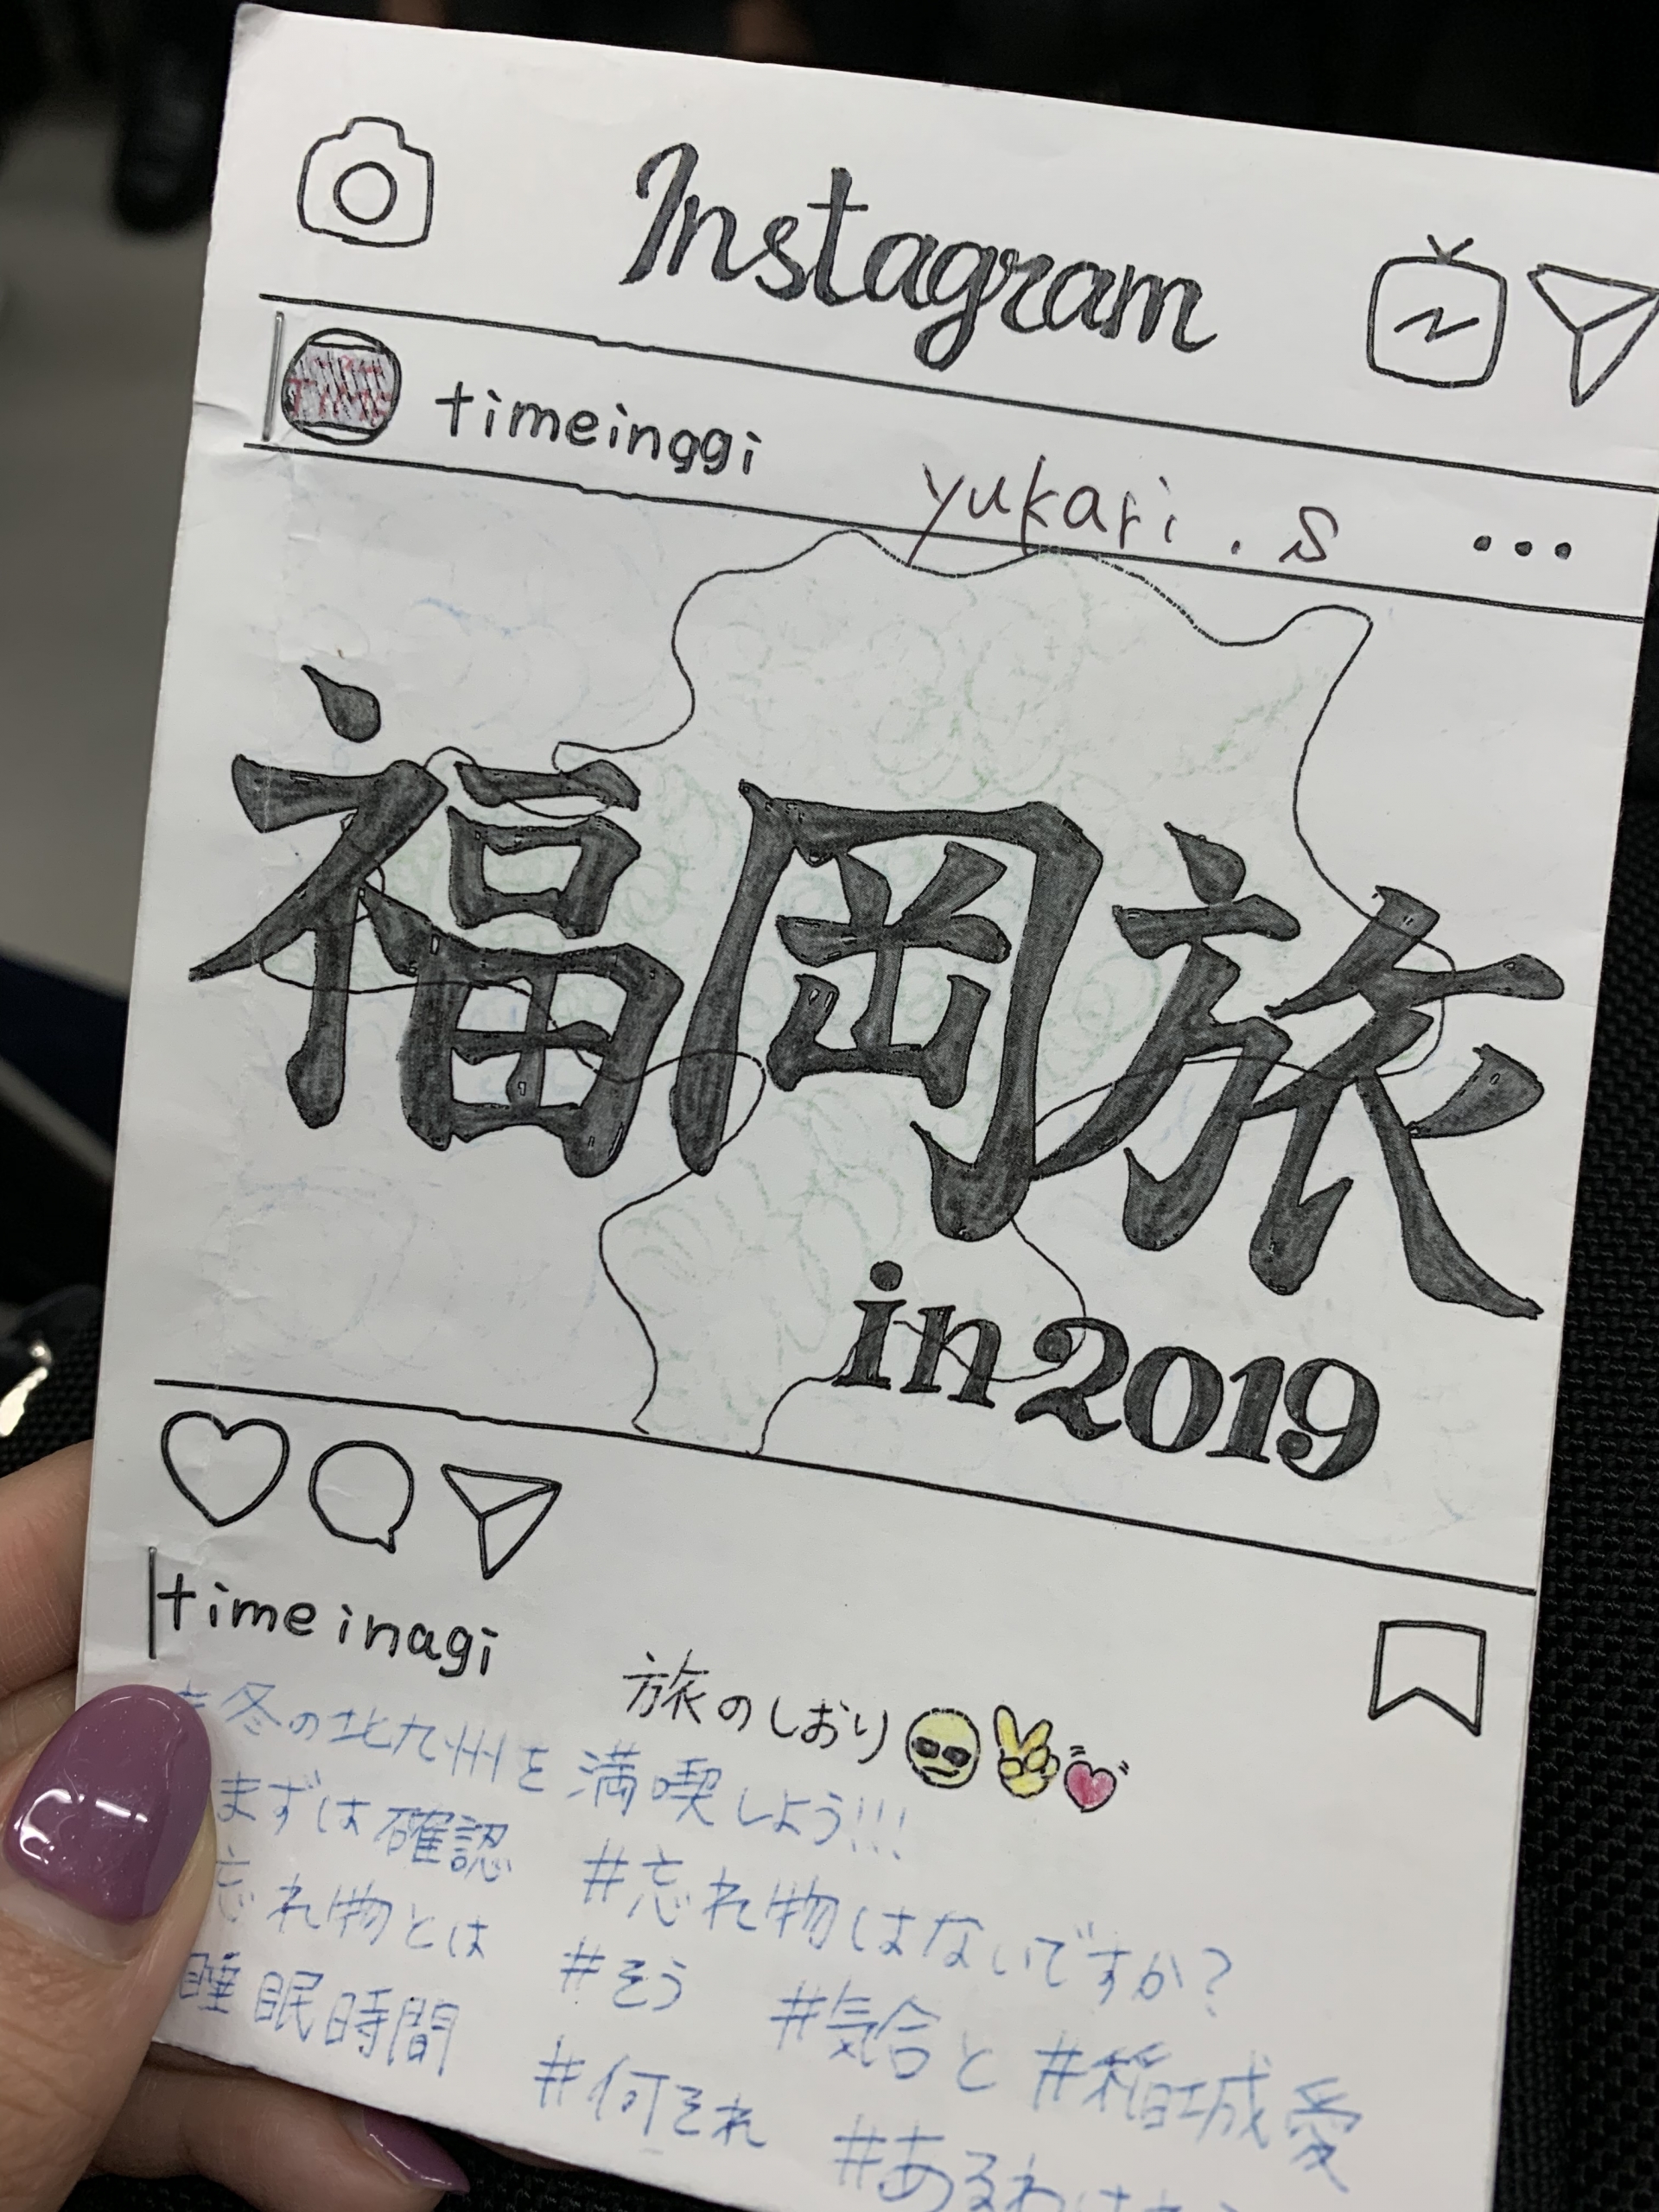 Instagram
timeinggi yukari.s ...
福岡旅
in 2019
timeinagi 旅のしおり
#冬の北九州を満喫しよう!!!
まずは確認 #忘れ物はないですか?
忘れ物とは #そう #気合と #稲城愛
睡眠時間 #何それ #あるわけ